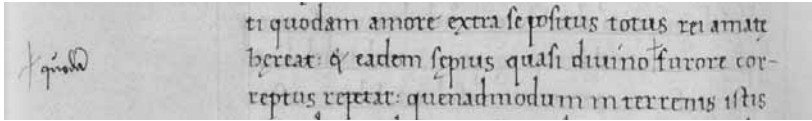 ti quodam amore extra se positus totus rei amatę
hereat: & eadem sępius quasi diuino furore cor-
quodā
reptus repetat: quenadmodum in terrenis istis